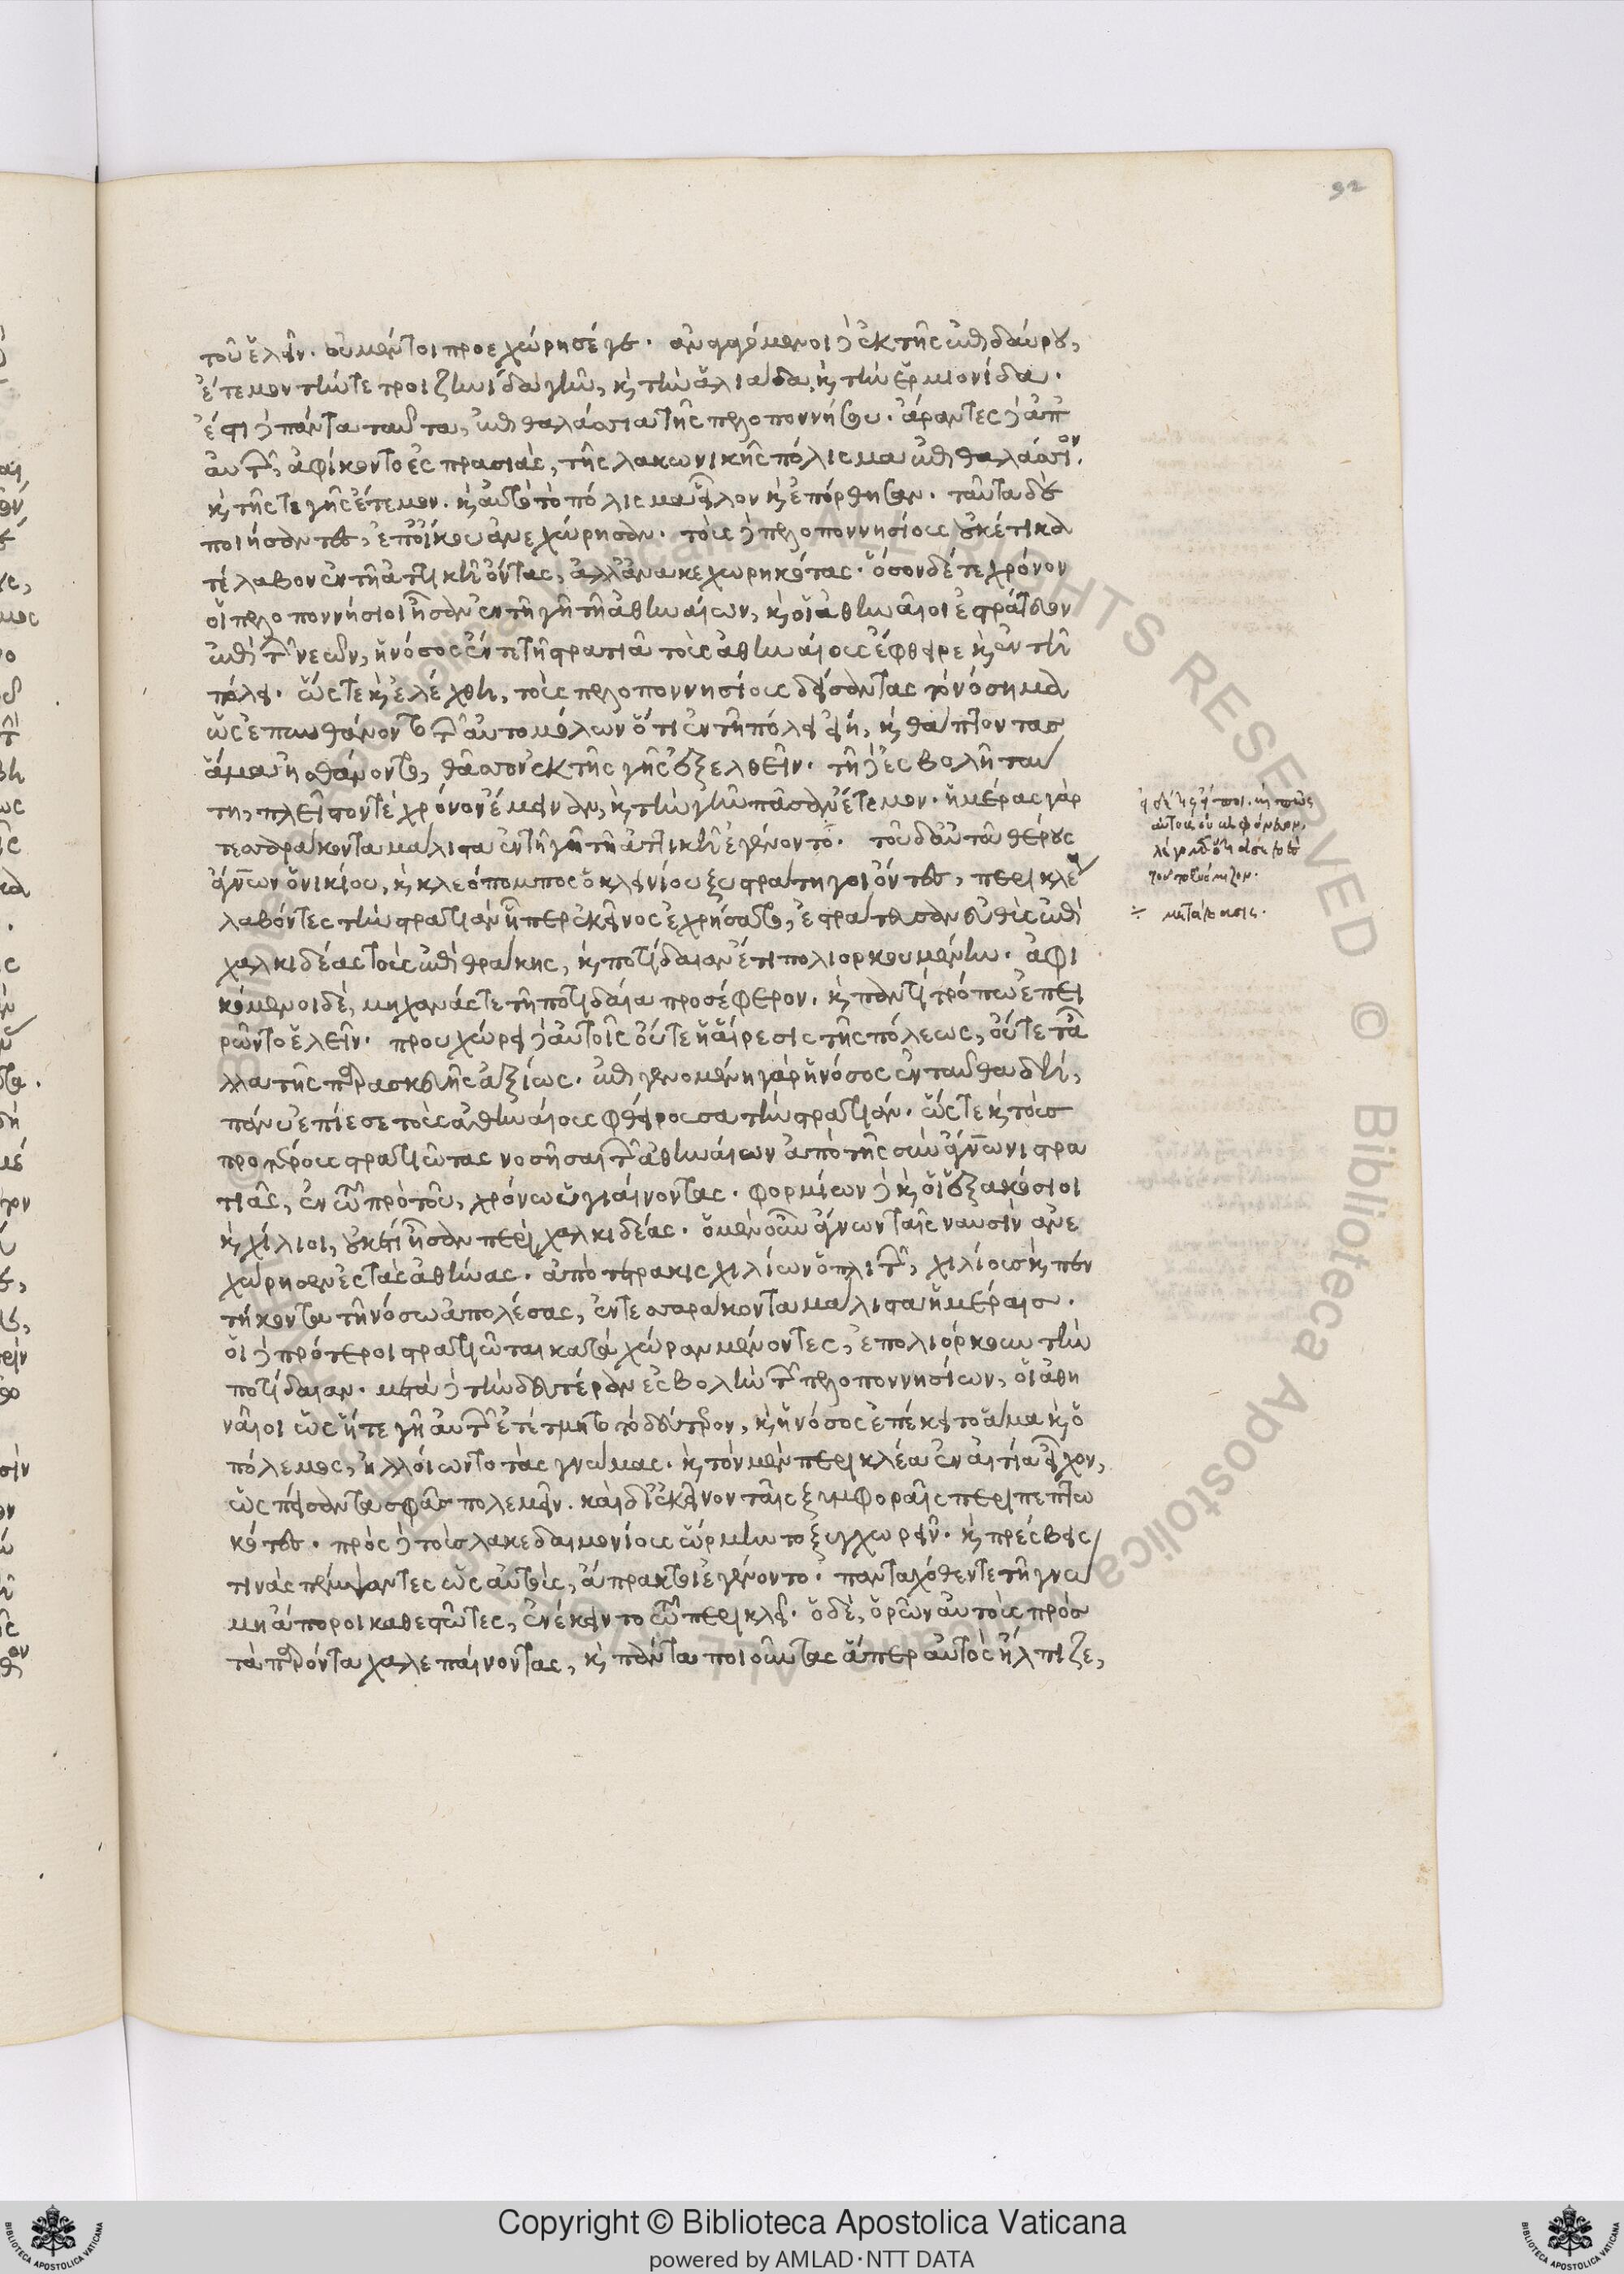 92
τοῦ ἑλεῖν. οὐ μέντοι προεχώρησέ γε. ἀναγαγόμενοι δὲ ἐκ τῆς ἐπιδαύρου,
ἔτεμον τήν τε τροιζηνίδα γῆν, καὶ τὴν ἁλιάδα, καὶ τὴν ἑρμιονίδα.
ἔστι δὲ πάντα ταῦτα, ἐπιθαλάσσια τῆς πελοποννήσου. ἄραντες δὲ ἀπ
αὐτῶν, ἀφίκοντο ἐς πρασιὰς, τῆς λακωνικῆς πόλισμα ἐπιθαλάσσιον.
καὶ τῆς τε γῆς ἔτεμον. καὶ αὐτὸ τὸ πόλισμα εἷλον καὶ ἐπόρθησαν. ταῦτα δὲ
ποιήσαντες, ἐπ' οἴκου ἀνεχώρησαν. τοὺς δὲ πελοποννησίους οὐκέτι κα
τέλαβον ἐν τῆ ἀττικῆ ὄντας, ἀλλ' ἀνακεχωρηκότας. ὅσον δέ τε χρόνον
οἱ πελοποννήσιοι ἦσαν ἐν τῆ γῆ τῆ ἀθηναίων, καὶ οἱ ἀθηναῖοι ἐστράτευον
ἐπὶ τῶν νεῶν, ἡ νόσος ἔν τε τῆ στρατιᾶ τοὺς ἀθηναίους ἔφθειρε καὶ ἐν τῆ
πόλει. ὥστε καὶ ἐλέχθη, τοὺς πελοποννησίους δείσαντας τὸ νόσημα
ὡς ἐπυνθάνοντο τῶν αὐτομόλων ὅτι ἐν τῆ πόλει εἴη, καὶ θάπτοντας
ἅμα ἠσθάνοντο, θᾶσσον ἐκ τῆς γῆς ἐξελθεῖν. τῆ δὲ ἐσβολῆ ταύ
τη, πλεῖστόν τε χρόνον ἔμειναν, καὶ τὴν γῆν πᾶσαν ἔτεμον. ἡμέρας γὰρ
τεσσαράκοντα μάλιστα ἐν τῆ γῆ τῆ ἀττικῆ ἐγένοντο. τοῦ δ' αὐτοῦ θέρους
ἅγνων ὁ νικίου, καὶ κλεόπομπος ὁ κλεινίου ξυστράτηγοι ὄντες, περικλέους
λαβόντες τὴν στρατιὰν ἧπερ ἐκεῖνος ἐχρήσατο, ἐστράτευσαν εὐθὺς ἐπὶ
χαλκιδέας τοὺς ἐπὶ θράκης, καὶ ποτίδαιαν ἔτι πολιορκουμένην. ἀφι
κόμενοι δὲ, μηχανάς τε τῆ ποτιδαία προσέφερον. καὶ παντὶ τρόπω ἐπει
ρῶντο ἑλεῖν. προυχώρει δὲ αὐτοῖς οὔτε ἡ αἵρεσις τῆς πόλεως, οὔτε τἆ
λλα τῆς παρασκευῆς ἀξίως. ἐπιγενομένη γὰρ ἡ νόσος ἐνταῦθα δὴ,
πάνυ ἐπίεσε τοὺς ἀθηναίους φθείρουσα τὴν στρατιάν. ὥστε καὶ τοὺς
προτέρους στρατιώτας νοσῆσαι τῶν ἀθηναίων ἀπὸ τῆς σὺν ἅγνωνι στρα
τιᾶς, ἐν τῶ πρὸ τοῦ, χρόνω ὑγιαίνοντας. φορμίων δὲ καὶ οἱ ἑξακόσιοι
καὶ χίλιοι, οὐκέτι ἦσαν περὶ χαλκιδέας. ὁ μὲν οὖν ἅγνων ταῖς ναυσὶν ἀνε
χώρησεν ἐς τὰς ἀθήνας. ἀπὸ τετρακισχιλίων ὁπλιτῶν, χιλίους καὶ πεν
τήκοντα τῆ νόσω ἀπολέσας, ἐν τεσσαράκοντα μάλιστα ἡμέραις.
οἱ δὲ πρότεροι στρατιῶται κατὰ χώραν μένοντες, ἐπολιόρκουν τὴν
ποτίδαιαν. μετὰ δὲ τὴν δευτέραν ἐσβολὴν τῶν πελοποννησίων, οἱ ἀθη
ναῖοι ὡς ἥ τε γῆ αὐτῶν ἐτέτμητο τὸ δεύτερον, καὶ ἡ νόσος ἐπέκειτο ἅμα καὶ ὁ
πόλεμος, ἠλλοίωντο τὰς γνώμας. καὶ τὸν μὲν περικλέα ἐν αἰτία εἶχον,
ὡς πείσαντα σφᾶς πολεμεῖν. καὶ δι' ἐκεῖνον ταῖς ξυμφοραῖς περιπεπτω
κότες. πρὸς δὲ τοὺς λακεδαιμονίους ὥρμηντο ξυγχωρεῖν. καὶ πρέσβεις
τινὰς πέμψαντες ὡς αὐτοὺς, ἄπρακτοι ἐγένοντο. πανταχόθεν τε τῆ γνώ
μη ἄποροι καθεστῶτες, ἐνέκειντο τῶ περικλεῖ. ὁ δὲ, ὁρῶν αὐτοὺς πρὸς
τὰ παρόντα χαλεπαίνοντας, καὶ πάντα ποιοῦντας ἅπερ αὐτὸς ἤλπιζε,